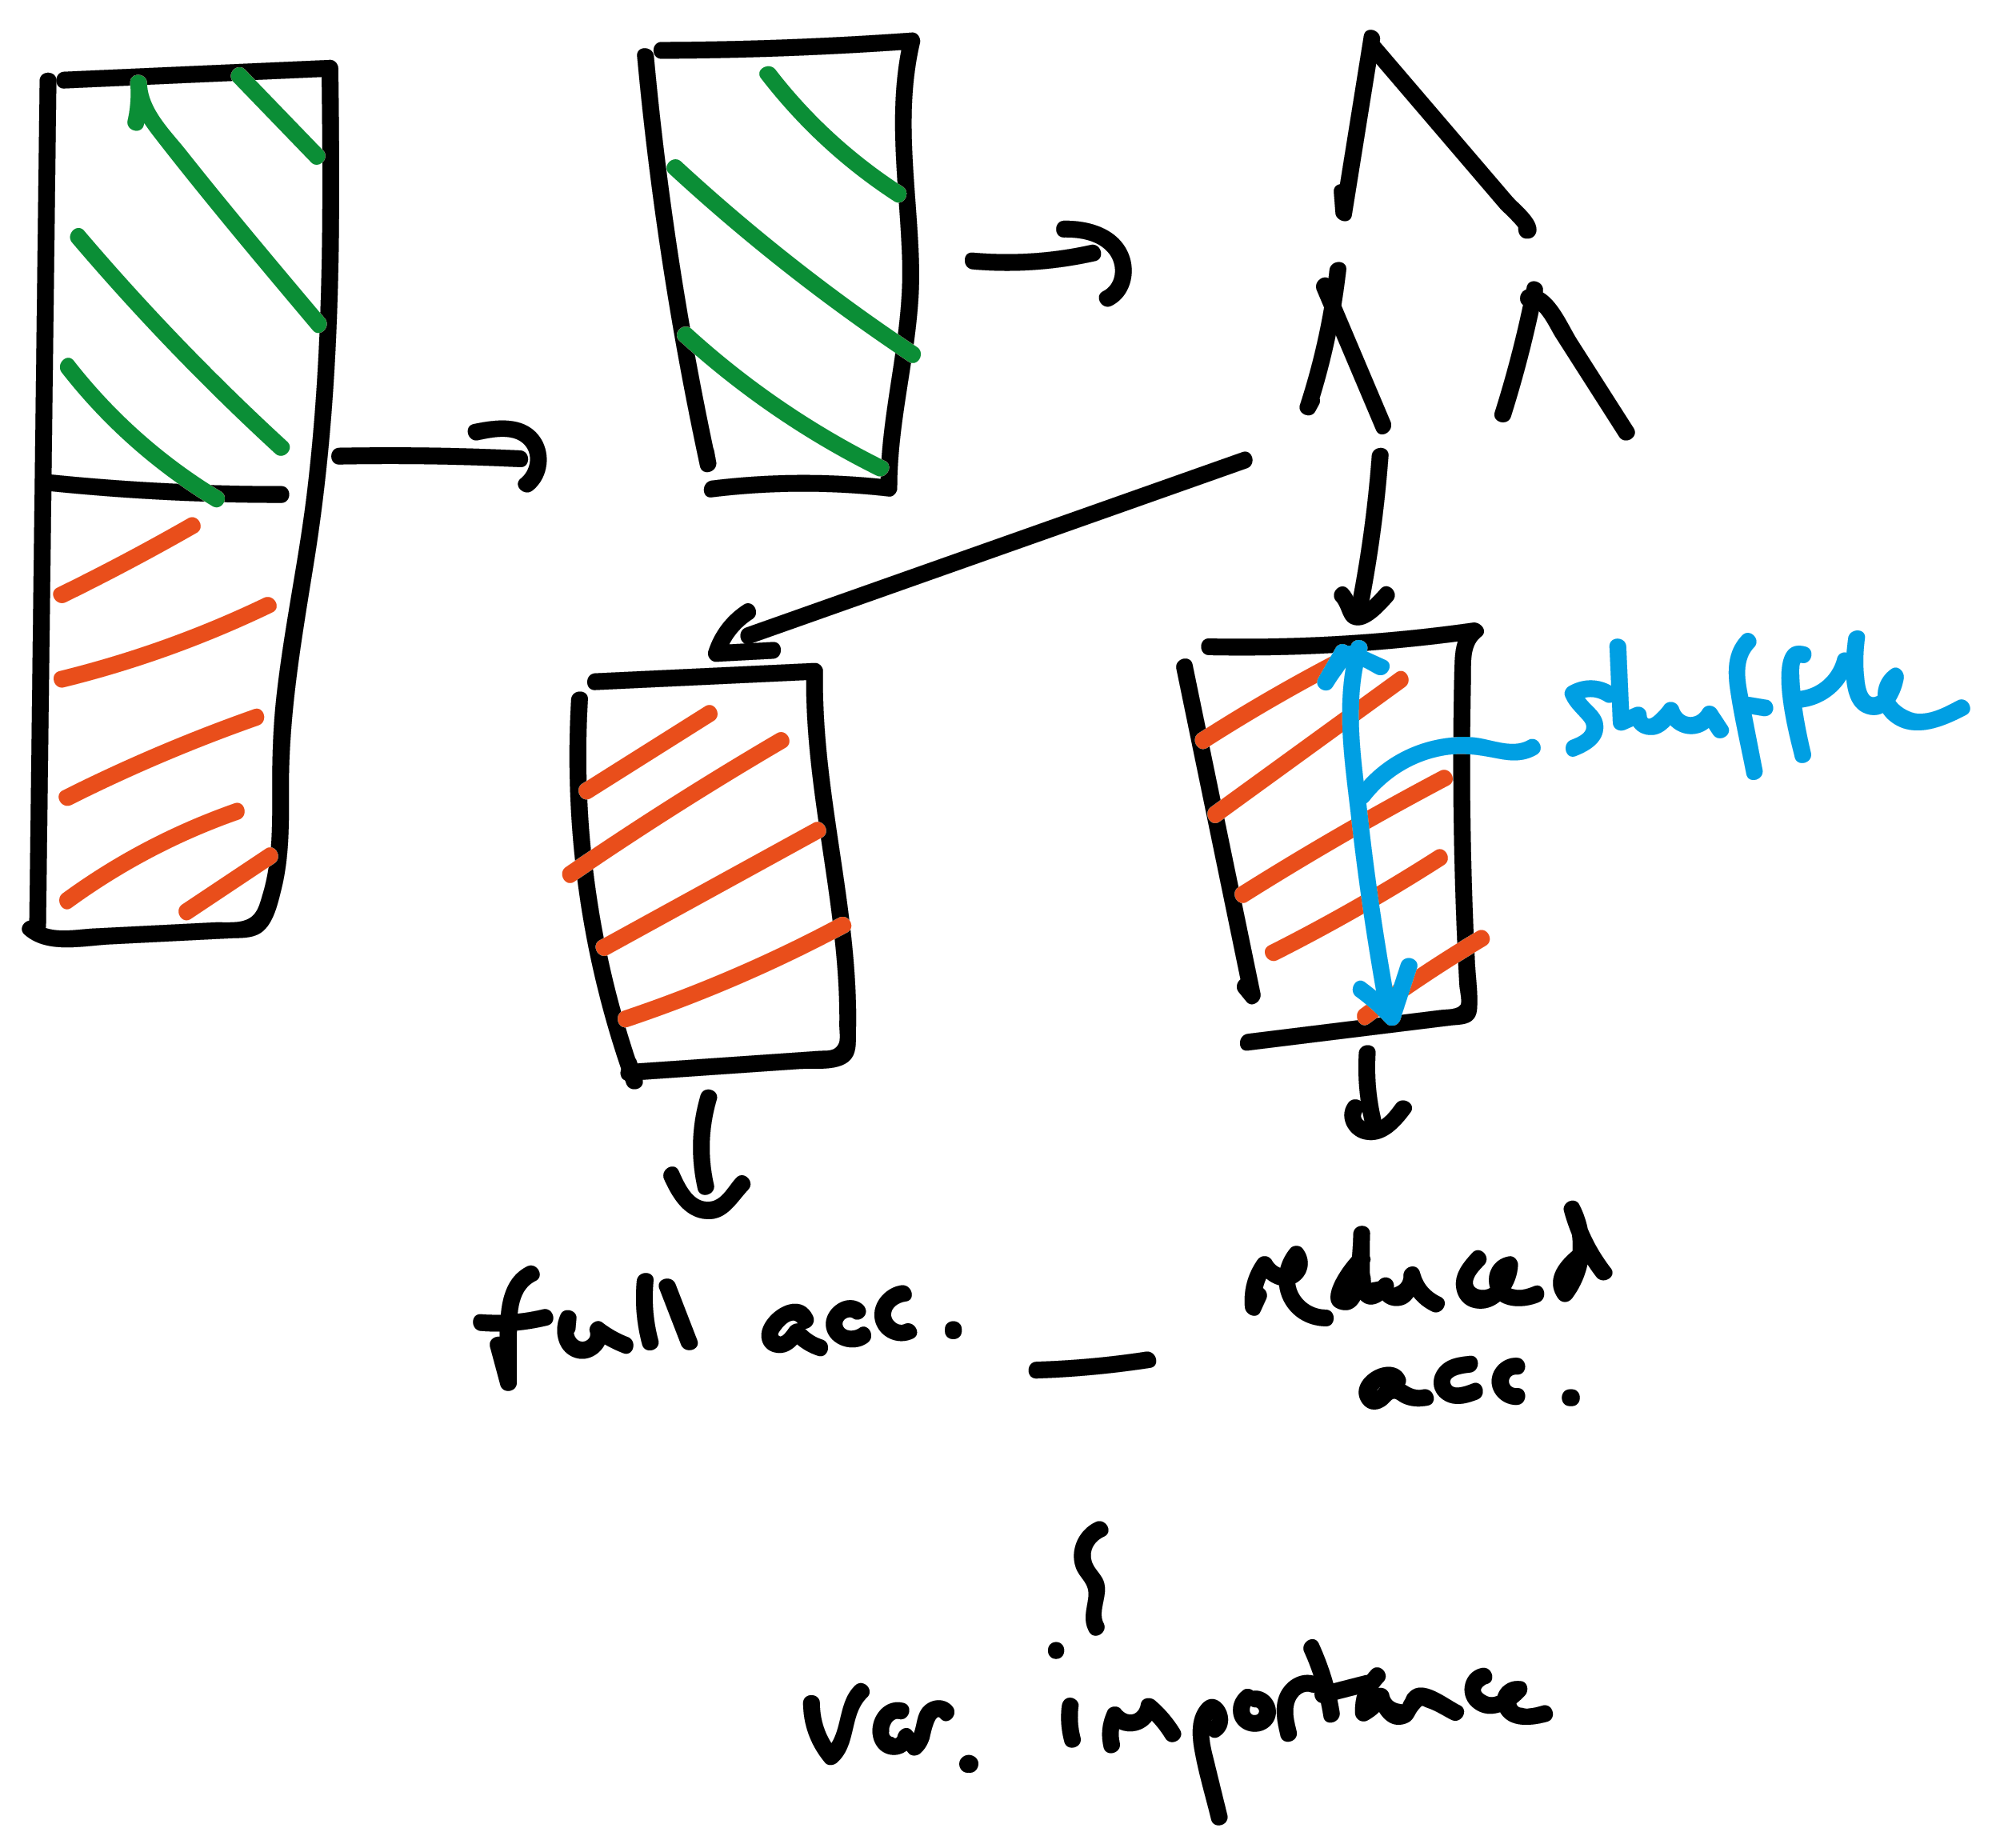 shuffle
full acc. — reduced
acc.
var. importance